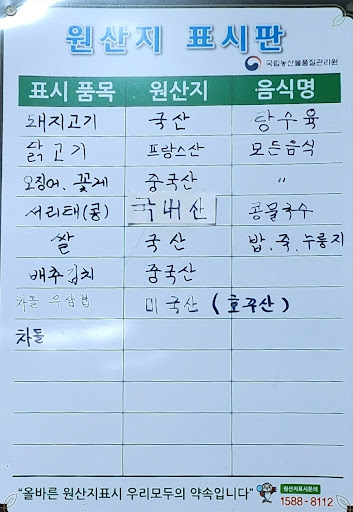 원산지 표시판
국립농산물품질관리원
표시 품목 원산지 음식명
돼지고기 국산 탕수육
닭고기 프랑스산 모든음식
오징어, 꽃게 중국산 〃
서리태(콩) 국내산 콩물국수
쌀 국산 밥, 죽, 누룽지
배추김치 중국산
차돌 우삼겹 미국산 (호주산)
차돌
"올바른 원산지표시 우리모두의 약속입니다"
원산지표시문의
1588-8112